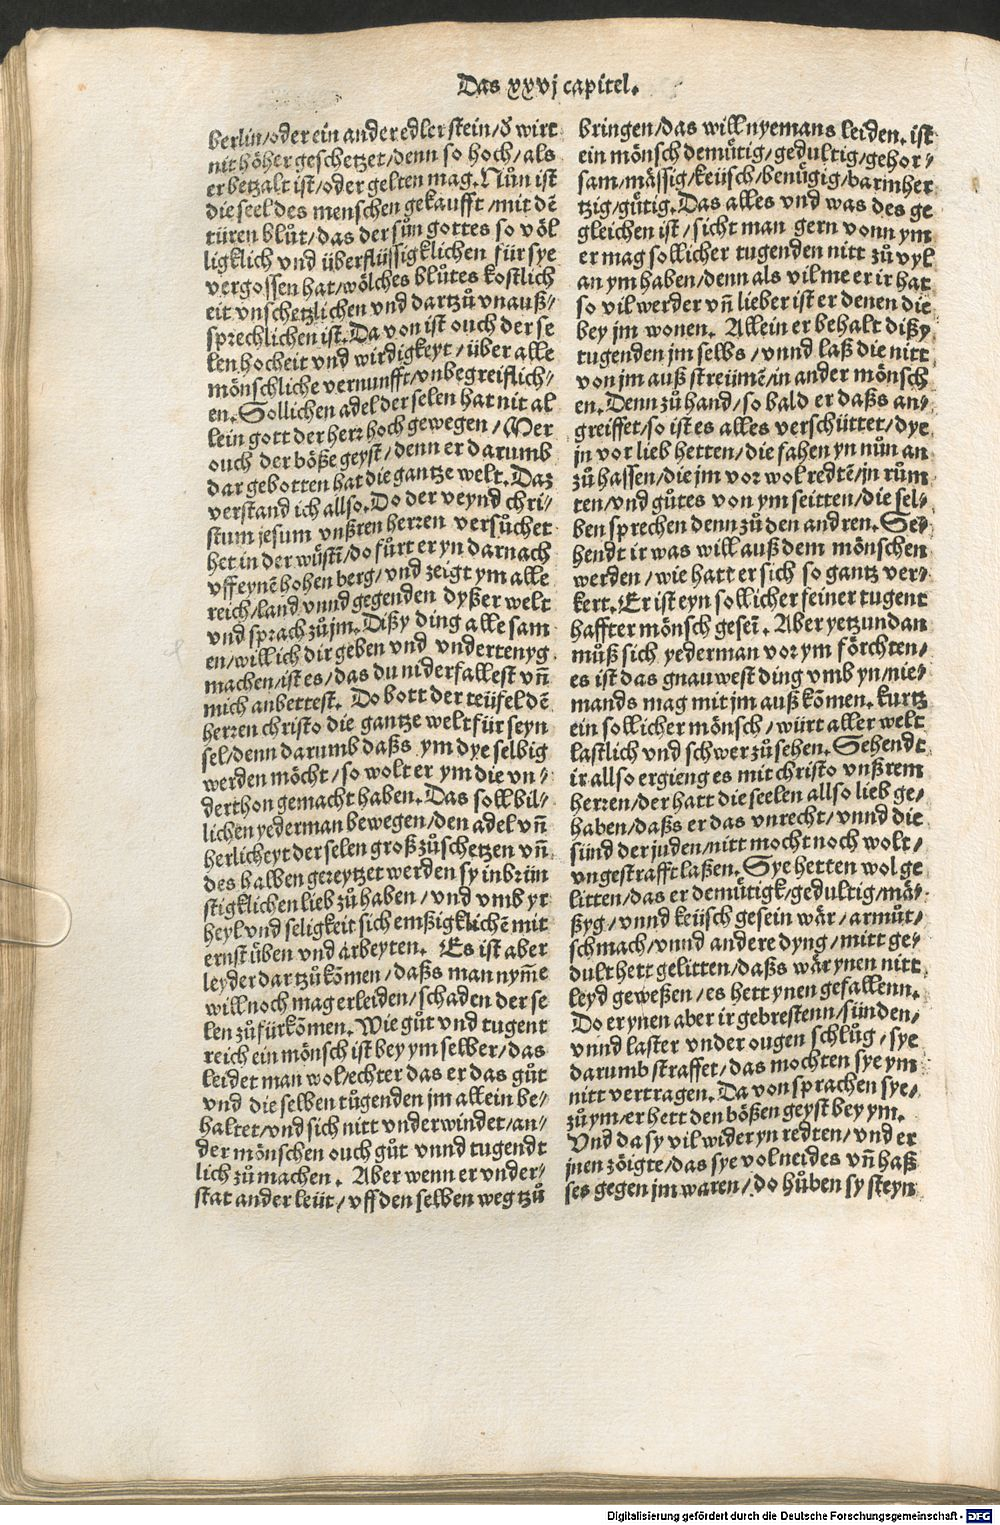 Das xxvj capitel.
berlin/oder ein ander edler stein/d̕ wirt
nit höher geschetzet/denn so hoch/als
er betzalt ist/oder gelten mag. Nůn ist
die seel des menschen gekaufft/mit dē
türen blůt/das der sůn gottes so völ
ligklich vnd überflüssigklichen für sye
vergossen hat/wölches blůtes kostlich
eit vnschetzlichen vnd dartzů vnauß⸗
sprechlichen ist. Da von ist ouch der se
len hocheit vnd wirdigkeyt/über alle
mönschliche vernunfft/vnbegreiflich⸗
en. Sollichen adel der selen hat nit al
lein gott der herr hoch gewegen/Mer
ouch der böße geyst/denn er darumb
dar gebotten hat die gantze welt. Daz
verstand ich allso. Do der veynd chri⸗
stum jesum vnßren herren versůchet
het in der wüstī/do fůrt er yn darnach
vff eynē hohen berg/vnd zeigt ym alle
reich/land vnnd gegenden dyßer welt
vnd sprach zů jm. Dißy ding alle sam
en/will ich dir geben vnd vndertenyg
machen/ist es/das du niderfallest vn̄
mich anbettest. Do bott der teüfel dē
herren christo die gantze welt für seyn
sel/denn darumb daßs ym dye selbig
werden möcht/so wolt er ym die vn⸗
derthon gemacht haben. Das soll bil⸗
lichen yederman bewegen/den adel vn̄
herlicheyt der selen groß zů schetzen vn̄
des halben gereytzet werden sy inbrün
stigklichen lieb zů haben/vnd vmb yr
heyl vnd seligkeit sich emßigklichē mit
ernst üben vnd arbeyten. Es ist aber
leyder dar tzů kōmen/daßs man nym̄e
will noch mag erleiden/schaden der se
len zů fürkōmen. Wie gůt vnd tugent
reich ein mönsch ist bey ym selber/das
leidet man wol/echter das er das gůt
vnd die selben tůgenden jm allein be⸗
haltet/vnd sich nitt vnderwindet/an⸗
der mönschen ouch gůt vnnd tugendt
lich zů machen. Aber wenn er vnder⸗
stat ander leüt/vff den selben weg tzů
bringen/das will nyemans leiden. ist
ein mönsch demůtig/gedultig/gehor⸗
sam/mässig/keüsch/benůgig/barmher
tzig/gůtig. Das alles vnd was des ge
gleichen ist/sicht man gern vonn ym
er mag sollicher tugenden nitt zů vyl
an ym haben/denn als vil me er ir hat
so vil werder vn̄ lieber ist er denen die
bey jm wonen. Allein er behalt dißy
tugenden jm selbs/vnnd laß die nitt
von jm auß streümē/in ander mönsch
en. Denn zů hand/so bald er daßs an⸗
greiffet/so ist es alles verschüttet/dye
jn vor lieb hetten/die fahen yn nůn an
zů hassen/die jm vor wol redtē/jn rům
ten/vnd gůtes von ym seitten/die sel⸗
ben sprechen denn zů den andren. Se⸗
hendt ir was will auß dem mönschen
werden/wie hatt er sich so gantz ver⸗
kert. Er ist eyn sollicher feiner tugent
haffter mönsch geseī. Aber yetzund an
můß sich yederman vor ym förchten/
es ist das gnauwest ding vmb yn/nie⸗
mands mag mit jm auß kōmen. kurtz
ein sollicher mönsch/würt aller welt
lastlich vnd schwer zů sehen. Sehendt
ir allso ergieng es mit christo vnßrem
herren/der hatt die seelen allso lieb ge⸗
haben/daßs er das vnrecht/vnnd die
sünd der juden/nitt mocht noch wolt/
vngestrafft laßen. Sye hetten wol ge
litten/das er demůtigk/gedultig/mä⸗
ßyg/vnnd keüsch gesein wär/armůt/
schmach/vnnd andere dyng/mitt ge⸗
dult hett gelitten/daßs wär ynen nitt
leyd geweßen/es hett ynen gefallenn.
Do er ynen aber ir gebrestenn/sünden/
vnnd laster vnder ougen schlůg/sye
darumb straffet/das mochten sye ym
nitt vertragen. Da von sprachen sye⸗
zů ym/er hett den bößen geyst bey ym.
Vnd da sy vil wider yn redten/vnd er
jnen zöigte/das sye vol neides vn̄ haß
ses gegen jm waren/do hůben sy steyn
Digitalisierung gefördert durch die Deutsche Forschungsgemeinschaft - DFG